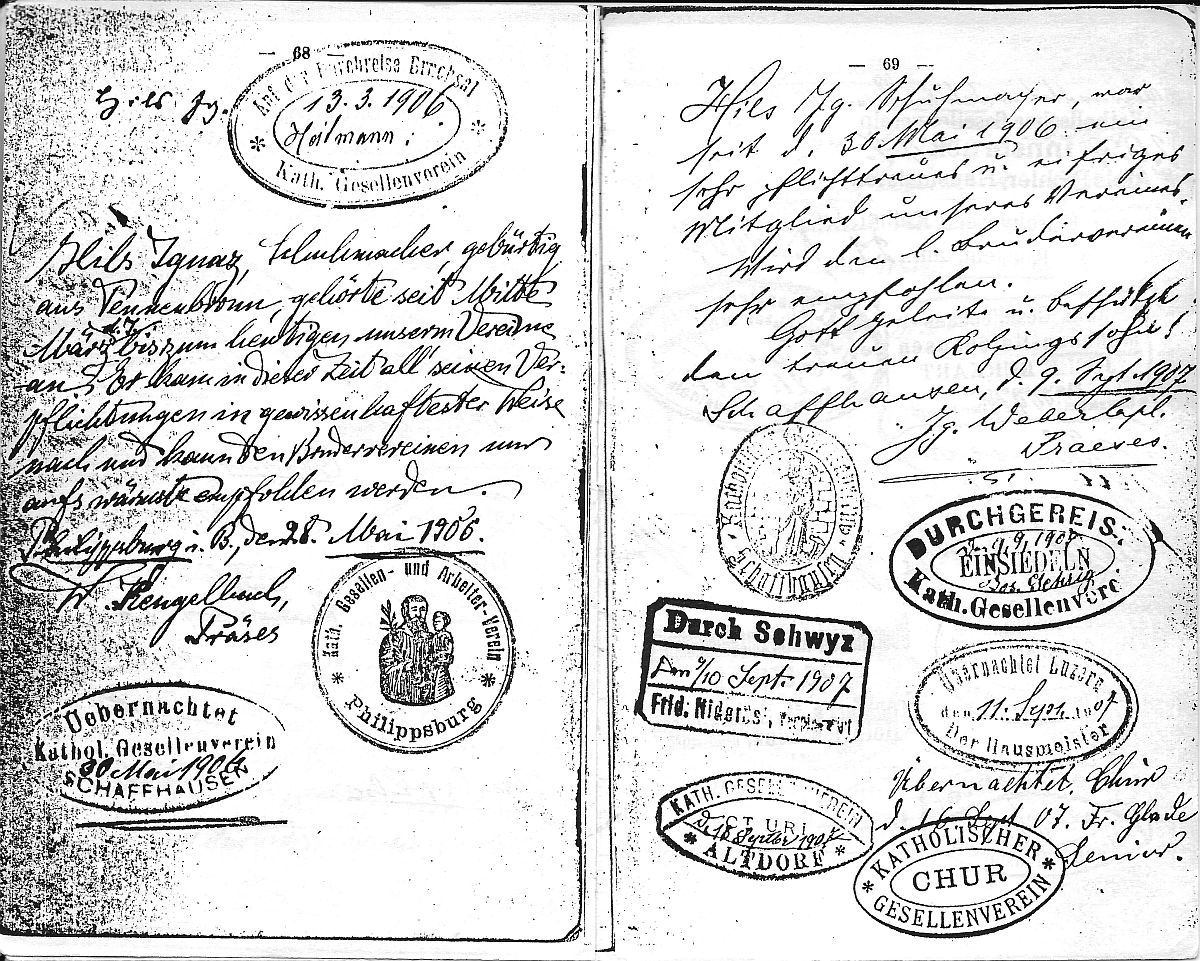 — 68 —
Hils Jg.
Auf der Durchreise Bruchsal
13.3.1906
Heilmann:
* Kath. Gesellenverein *
Hils Ignaz, Schuhmacher, gebürtig
aus Tennenbronn, gehörte seit Mitte
März d. J. bis zum heutigen unserm Vereine
an. Er kam in dieser Zeit all' seinen Ver-
pflichtungen in gewissenhaftester Weise
nach und kann den Brudervereinen nur
aufs wärmste empfohlen werden.
Philippsburg i. B., den 28. Mai 1906.
W. Kengelbach,
Präses
* Kath. Gesellen- und Arbeiter-Verein *
Philippsburg
Uebernachtet
Kathol. Gesellenverein
30 Mai 1906
SCHAFFHAUSEN
— 69 —
Hils Jg. Schuhmacher, war
seit d. 30 Mai 1906 ein
sehr pflichttreues u. eifriges
Mitglied unseres Vereines.
Wird den l. Brudervereinen
sehr empfohlen.
Gott geleite u. beschütze
den treuen Kolpingssohn!
Schaffhausen, d. 9. Sept. 1907
Jg. Weber
Praeses.
Schaffhausen
DURCHGEREIST
9.9.1907
EINSIEDELN
Kath. Gesellenverein
Durch Schwyz
Den 9/10 Sept. 1907
Frid.
Übernachtet Luzern
den 11. Sept. 1907
Der Hausmeister
KATH. GESELLENVEREIN
URI
1907
* ALTDORF *
Übernachtet, Chur
d. 16 Sept 07. Fr. Glade
Senior.
* KATHOLISCHER *
CHUR
GESELLENVEREIN